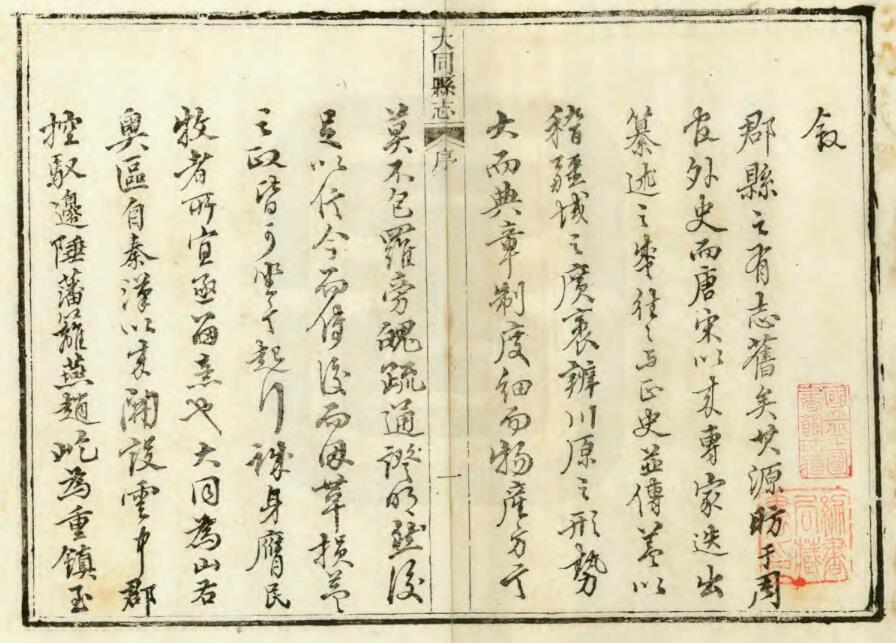 敘
郡縣之有志舊矣其源昉于周
官外史而唐宋以來專家迭出
纂述之業往往與正史並傳蓋以
稽疆域之廣袤辨川原之形勢
大而典章制度細而物產方言
大同縣志
序
一
莫不包羅旁魄疏通證明然後
足以信今而傳後而因革損益
之政皆可坐言起行 誠身膺民
牧者所宜亟留意也大同為山右
奧區自秦漢以來開設雲中郡
控馭邊陲藩籬燕趙屹為重鎮至